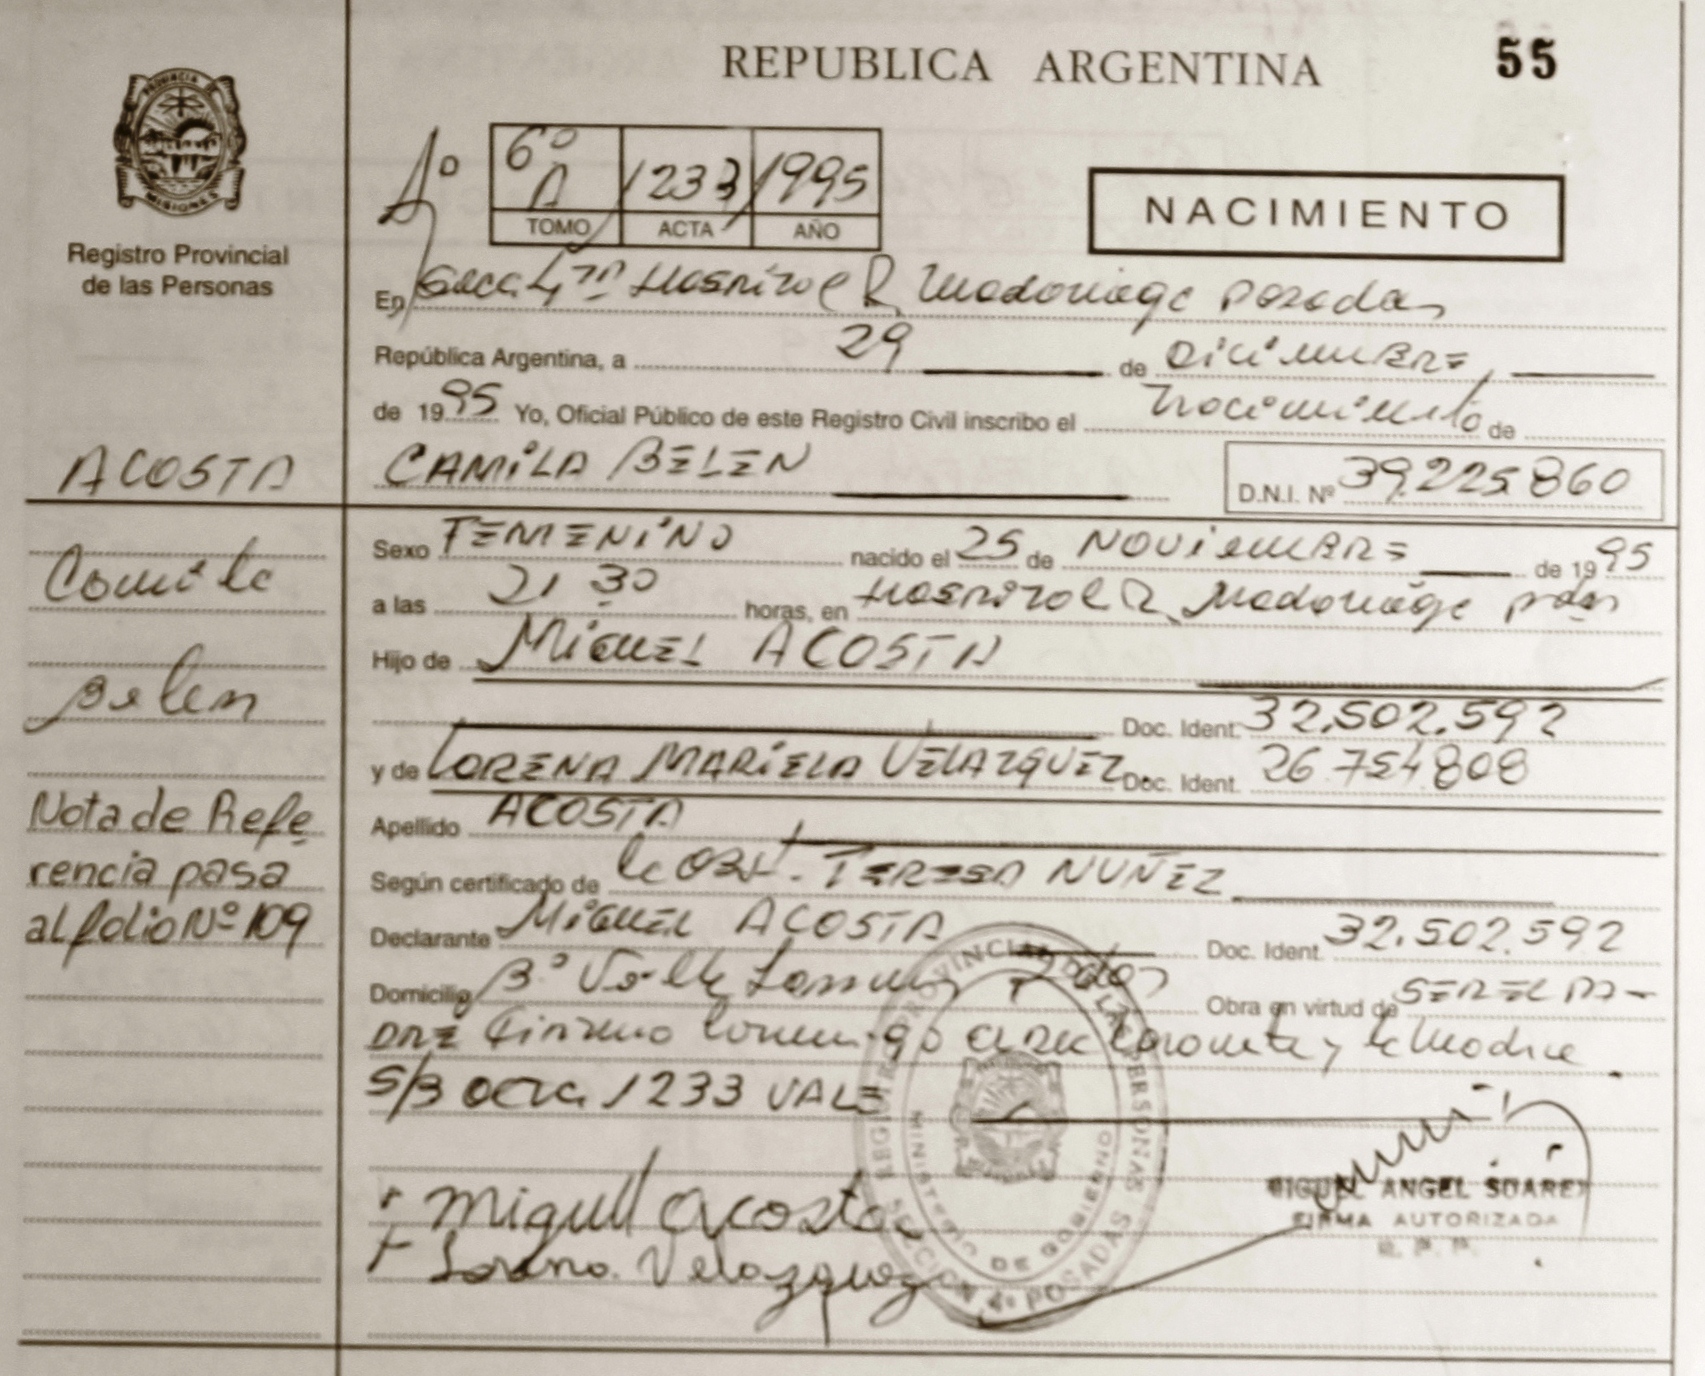 REPUBLICA ARGENTINA
55
PROVINCIA DE MISIONES
Registro Provincial
de las Personas
Aº
6º A 1233 1995
TOMO ACTA AÑO
NACIMIENTO
En Secc. 4ta Hospital R. Madariaga Posadas
República Argentina, a 29 de DICIEMBRE
de 1995 Yo, Oficial Público de este Registro Civil inscribo el Nacimiento de
ACOSTA CAMILA BELEN
D.N.I. Nº 39.225.860
Camila
Belen
Nota de Refe
rencia pasa
al folio Nº 109
Sexo FEMENINO nacido el 25 de NOVIEMBRE de 1995
a las 21 30 horas, en Hospital R. Madariaga Pdas
Hijo de MIGUEL ACOSTA
Doc. Ident. 32.502.592
y de LORENA MARIELA VELAZQUEZ. Doc. Ident. 26.754.808
Apellido ACOSTA
Según certificado de la Obst. TERESA NUÑEZ
Declarante MIGUEL ACOSTA Doc. Ident. 32.502.592
Domicilio Bº Valle Pdas Obra en virtud de SER EL PA-
DRE Firman conmigo el declarante y la Madre
S/B acta 1233 VALE
Miguel Acosta
Lorena Velazquez
REGISTRO PROVINCIAL DE LAS PERSONAS
MINISTERIO DE GOBIERNO
SECCION 4ª POSADAS
MIGUEL ANGEL SUAREZ
FIRMA AUTORIZADA
R. P. P.